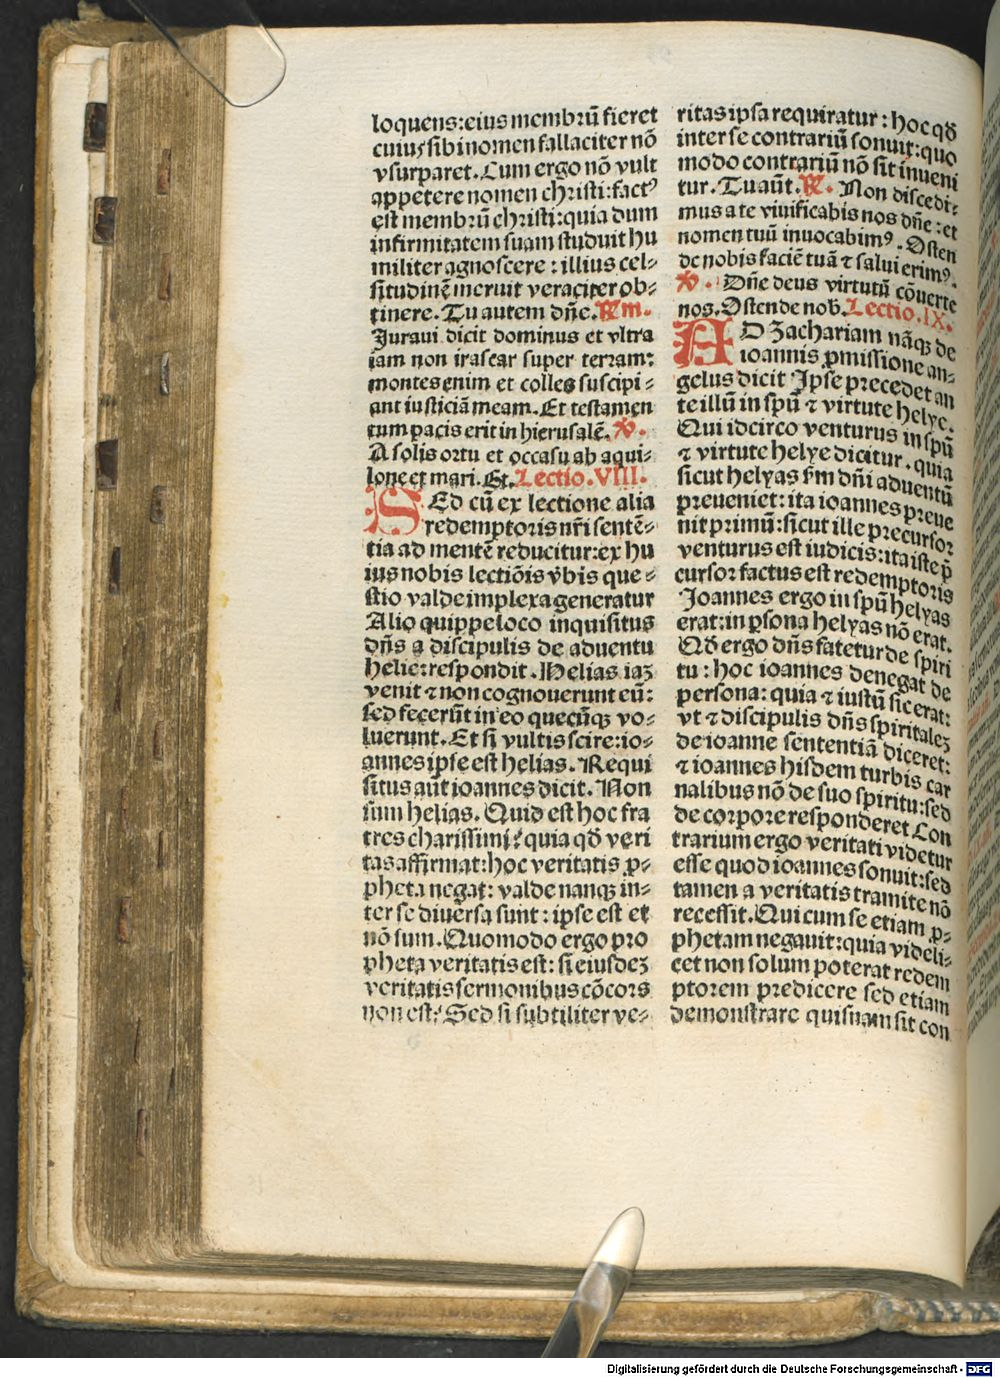 loquens:eius membrū fieret
cuius sibi nomen fallaciter nō
vsurparet. Cum ergo nō vult
appetere nomen christi:factꝰ
est membrū christi:quia dum
infirmitatem suam studuit hu
militer agnoscere : illius cel⸗
situdinē meruit veraciter ob⸗
tinere. Tu autem dñe. Rm.
Juraui dicit dominus et vltra
iam non irascar super terram:
montes enim et colles suscipi⸗
ant iusticiā meam. Et testamen
tum pacis erit in hierusalē. ℣.
A solis ortu et occasu ab aqui⸗
lone et mari. Et. Lectio. VIII.
SEd cū ex lectione alia
redemptoris nr̄i sentē⸗
tia ad mentē reducitur:ex hu
ius nobis lectiōis v̄bis que⸗
stio valde implexa generatur
Alio quippe loco inquisitus
dñs a discipulis de aduentu
helie:respondit. Helias iaꝫ
venit ⁊ non cognouerunt eū:
sed fecerūt in eo quecūqꝫ vo⸗
luerunt. Et si vultis scire:io⸗
annes ipse est helias. Requi
situs aūt ioannes dicit. Non
sum helias. Quid est hoc fra
tres charissimi? quia qđ veri
tas affirmat:hoc veritatis ꝓ⸗
pheta negat: valde nanqꝫ in⸗
ter se diuersa sunt : ipse est et
nō sum. Quomodo ergo pro
pheta veritatis est: si eiusdeꝫ
veritatis sermonibus cōcors
non est? Sed si subtiliter ve⸗
ritas ipsa requiratur : hoc qđ
inter se contrariū sonuit: quo
modo contrariū nō sit inueni
tur. Tu aūt. ℟. Non discedi⸗
mus a te viuificabis nos dñe : et
nomen tuū inuocabimꝰ. Osten
de nobis faciē tuā ⁊ salui erimꝰ.
℣. Dñe deus virtutū cōuerte
nos. Ostende nob̄. Lectio. IX.
AD Zachariam nāqꝫ de
ioannis ꝓmissione an⸗
gelus dicit Ipse precedet an
te illū in spū ⁊ virtute helye.
Qui idcirco venturus in spū
⁊ virtute helye dicitur . quia
sicut helyas s̄m dñi aduentū
preueniet: ita ioannes preue
nit primū: sicut ille precursor
venturus est iudicis: ita iste p̄
cursor factus est redemptoris
Joannes ergo in spū helyas
erat: in ꝑsona helyas nō erat.
Qđ ergo dñs fatetur de spiri
tu : hoc ioannes denegat de
persona: quia ⁊ iustū sic erat:
vt ⁊ discipulis dñs spiritaleꝫ
de ioanne sententiā diceret:
⁊ ioannes hisdem turbis car
nalibus nō de suo spiritu: sed
de corpore responderet Con
trarium ergo veritati videtur
esse quod ioannes sonuit: sed
tamen a veritatis tramite nō
recessit. Qui cum se etiam ꝓ⸗
phetam negauit: quia videli⸗
cet non solum poterat redem
ptorem predicere sed etiam
demonstrare quisnam sit con
Digitalisierung gefördert durch die Deutsche Forschungsgemeinschaft - DFG